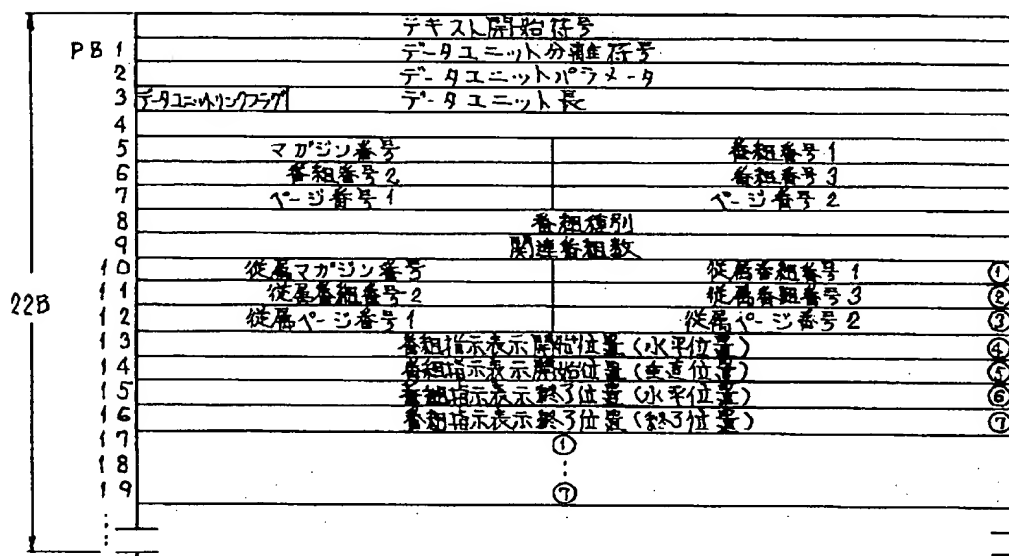 テキスト開始符号
PB 1 データユニット分離符号
2 データユニットパラメータ
3 データユニットリンクフラグ データユニット長
4
5 マガジン番号 番組番号1
6 番組番号2 番組番号3
7 ページ番号1 ページ番号2
8 番組種別
9 関連番組数
10 従属マガジン番号 従属番組番号1 ①
11 従属番組番号2 従属番組番号3 ②
12 従属ページ番号1 従属ページ番号2 ③
13 番組指示表示開始位置(水平位置) ④
14 番組指示表示開始位置(垂直位置) ⑤
15 番組指示表示終了位置(水平位置) ⑥
16 番組指示表示終了位置(終了位置) ⑦
17 ①
18 :
19 ⑦
:
22B